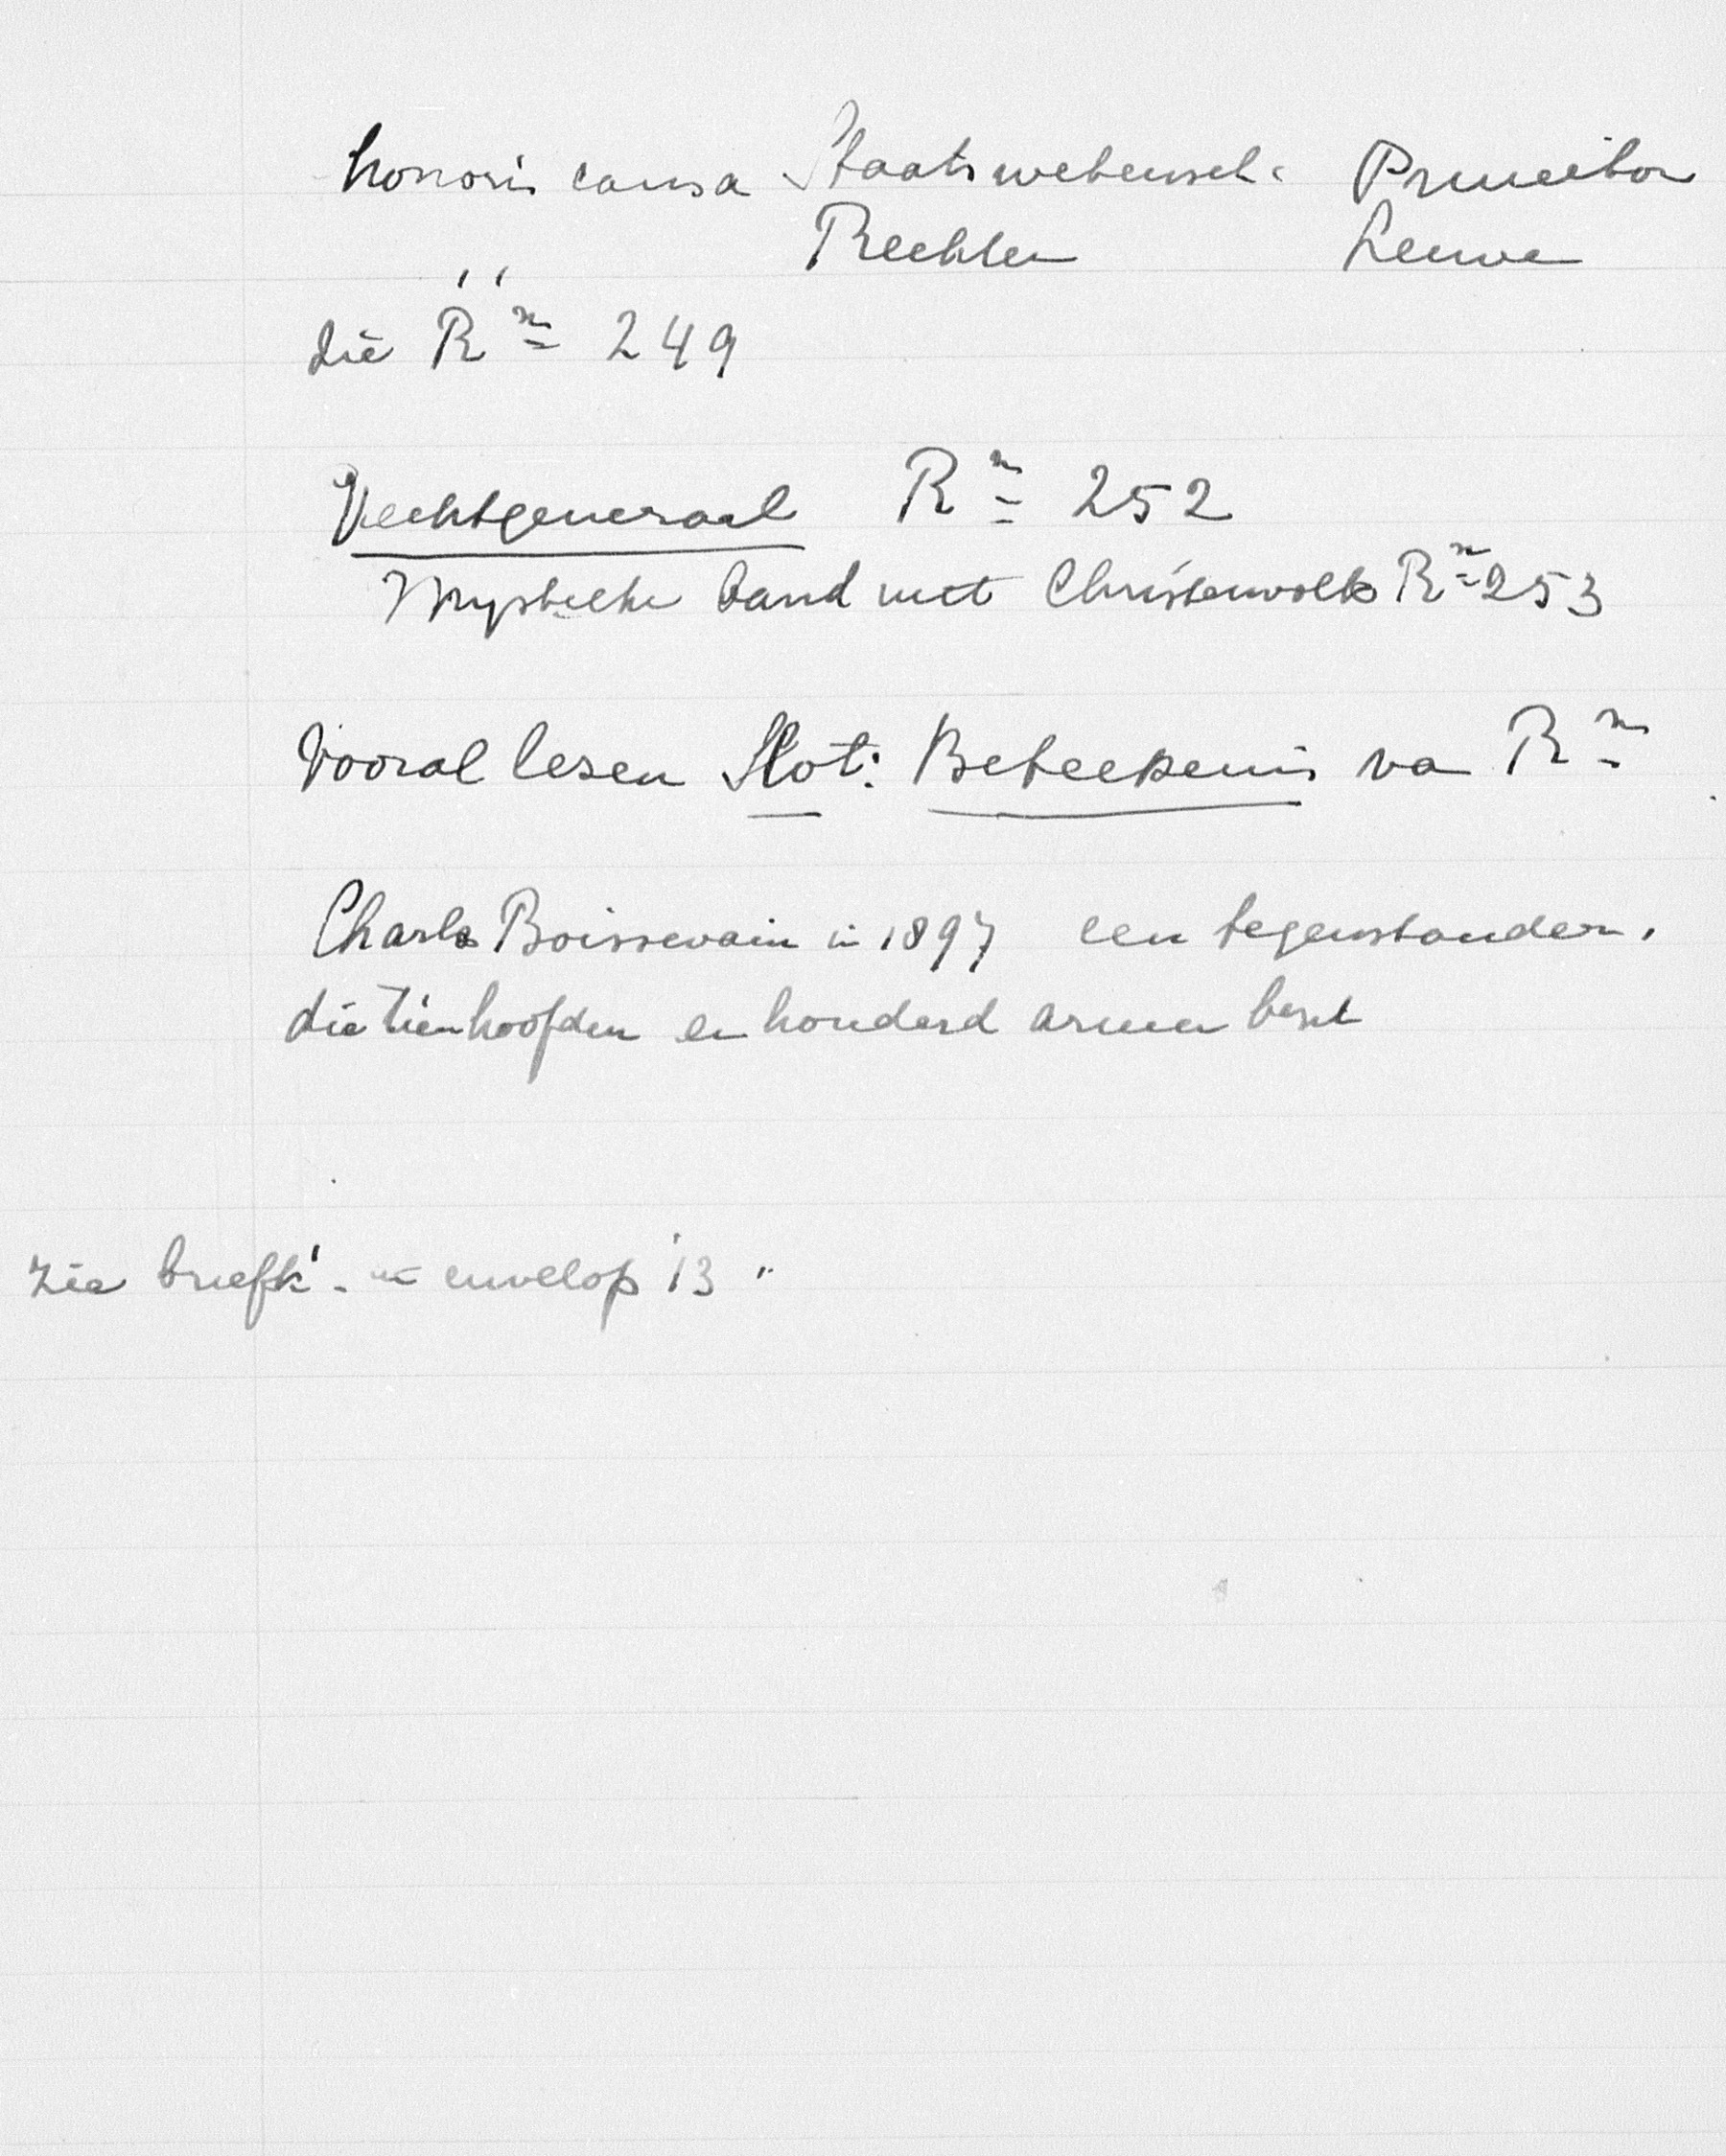 honoris causa Staatswetensch. Princeton
Rechten Leuven
" "
die Rn 249
Vechtgeneraal Rn 252
Mystieke band met Christenvolk Rn 253
Vooral lezen Slot: Beteekenis va Rn
Charles Boissevain in 1897 een tegenstander,
die tien hoofden en honderd armen bezit
zie briefk. in envelop 13 "